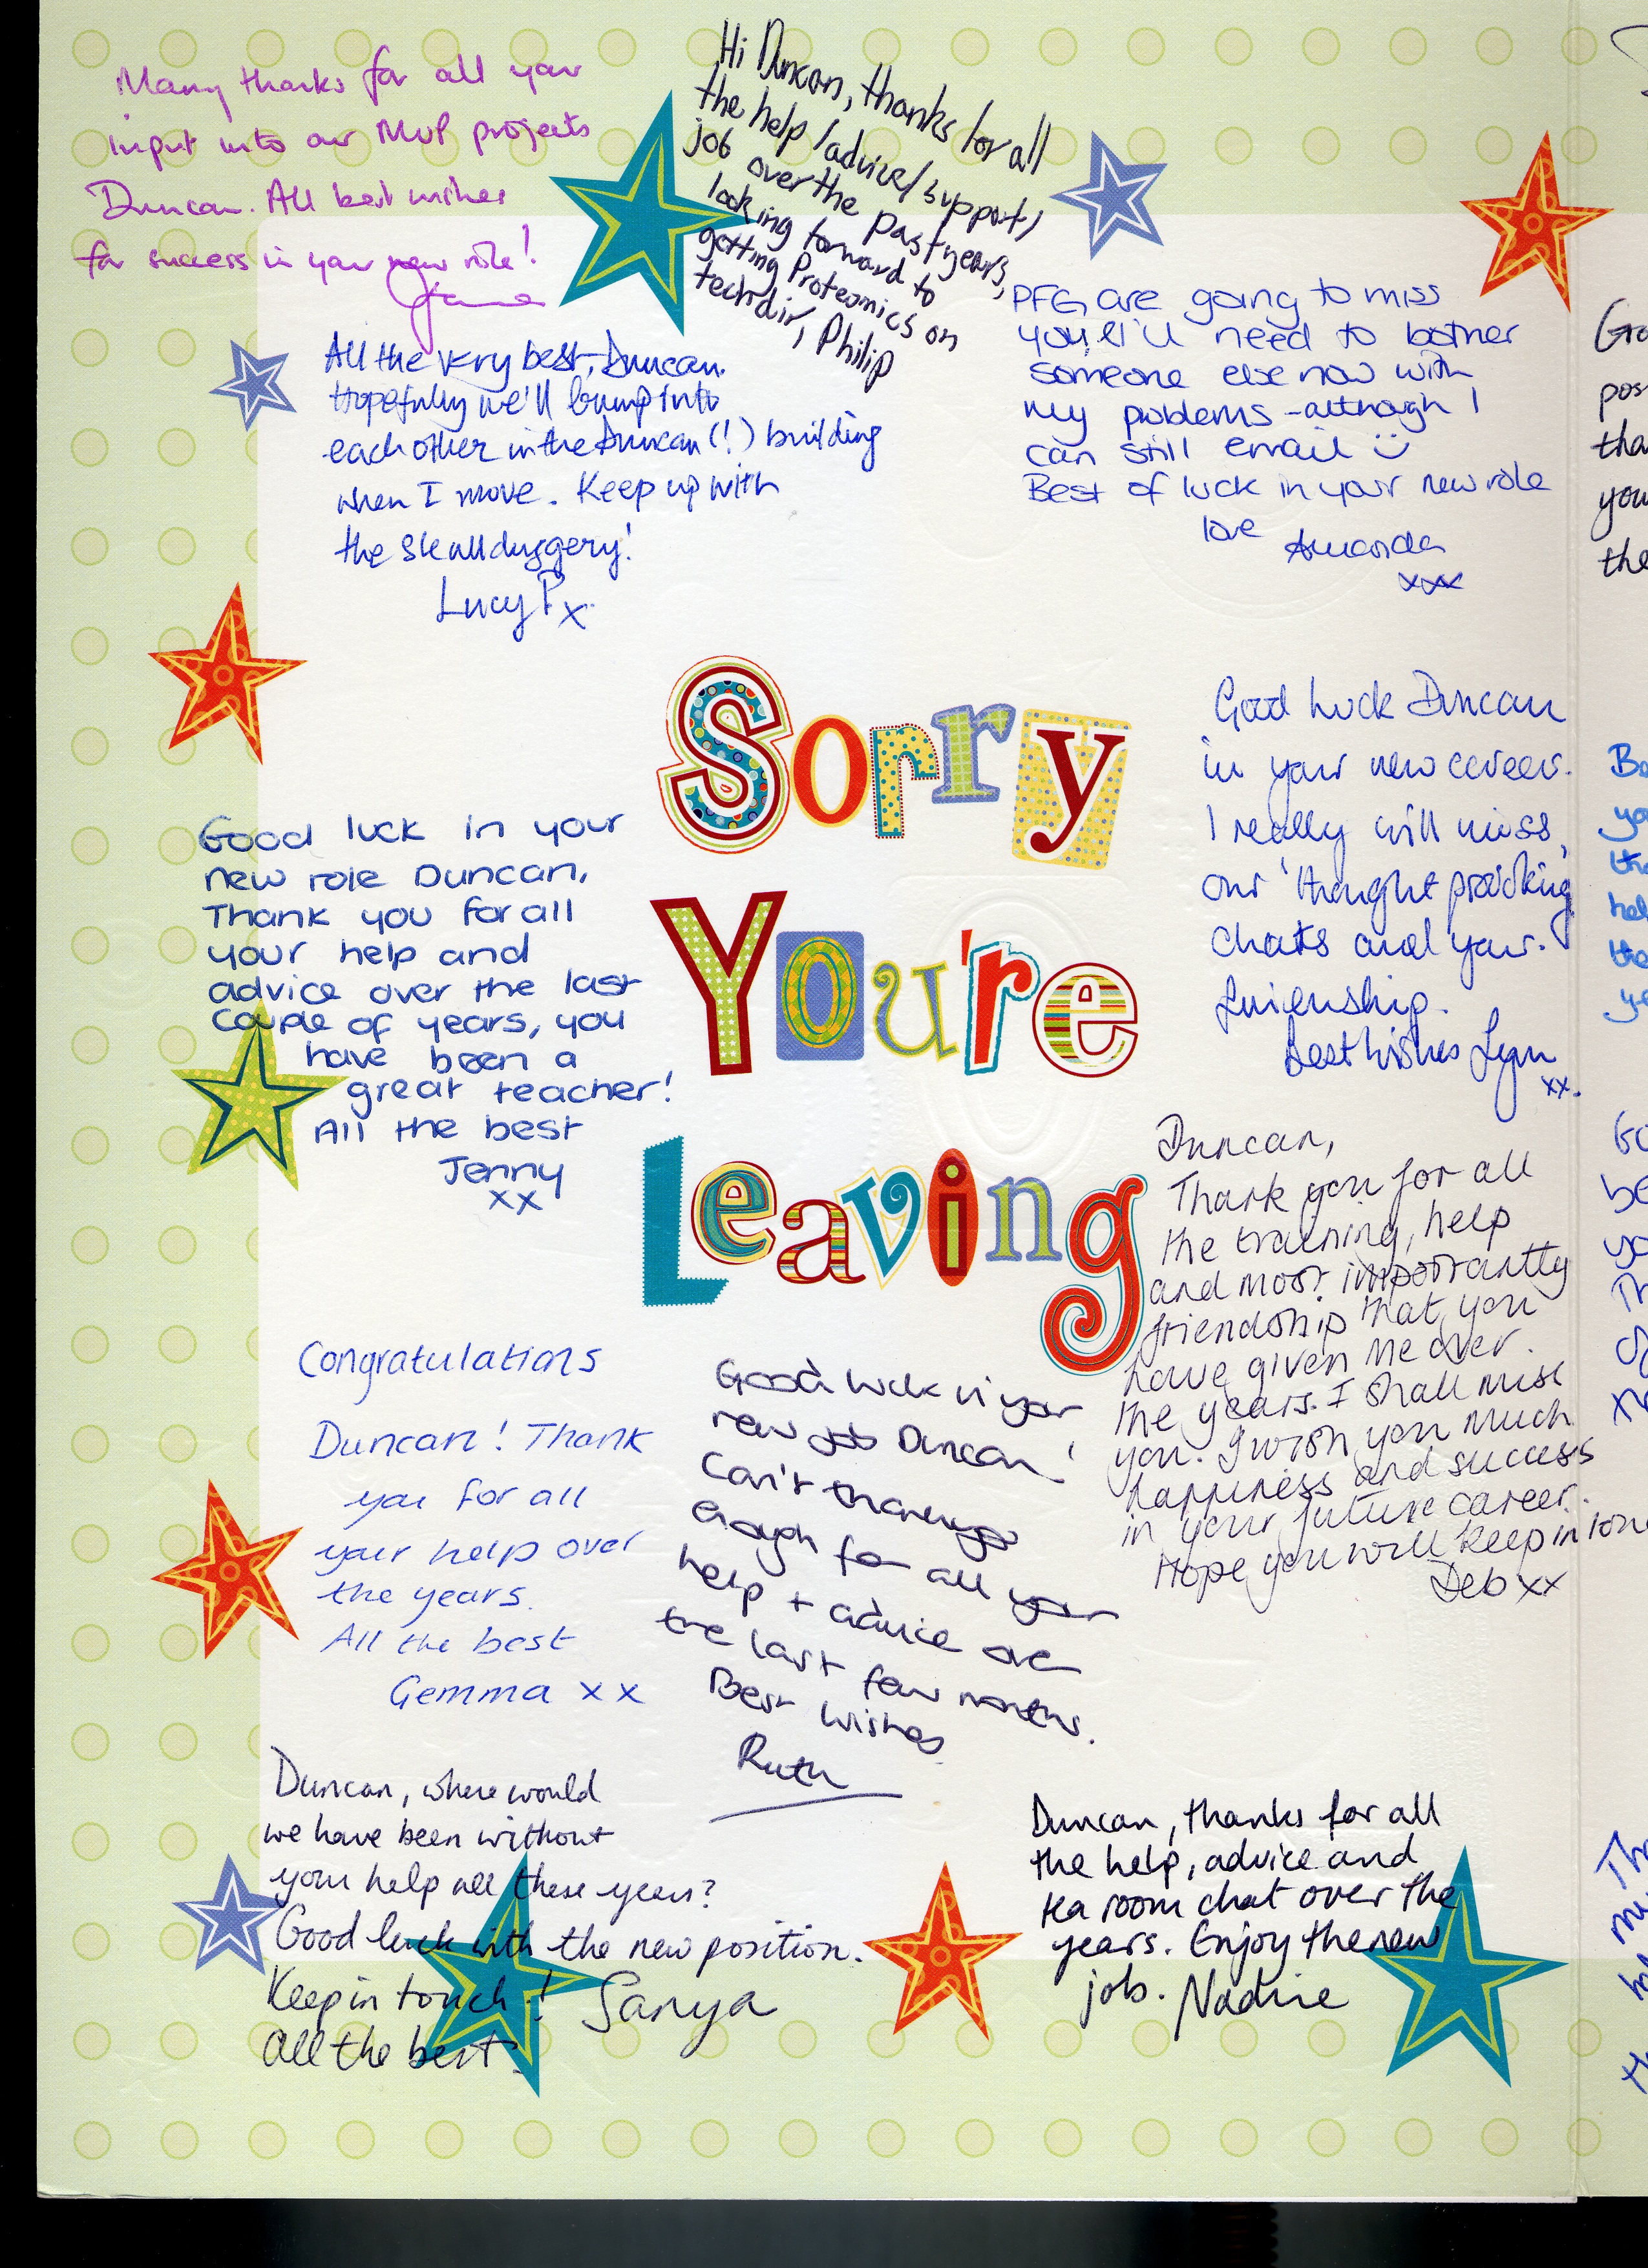 Many thanks for all your
input into our MVP projects
Duncan. All best wishes
for success in your new role!
Jane
Hi Duncan, thanks for all
the help/advice/support/
job over the past years,
looking forward to
getting Proteomics on
techdir, Philip
All the very best, Duncan.
Hopefully we'll bump into
each other in the Duncan (!) building
when I move. Keep up with
the skullduggery!
Lucy P x
PFG are going to miss
you, I'll need to bother
someone else now with
my problems - although I
can still email
Best of luck in your new role
love Amanda
xxx
Sorry
You're
Leaving
Good luck in your
new role Duncan,
Thank you for all
your help and
advice over the last
couple of years, you
have been a
great teacher!
All the best
Jenny
xx
Good luck Duncan
in your new career.
I really will miss
our 'thought provoking'
chats and your
friendship.
Best wishes Lynn
xx.
Duncan,
Thank you for all
the training, help
and most importantly
friendship that you
have given me over
the years. I shall miss
you. I wish you much
happiness and success
in your future career.
Hope you will keep in
Deb xx
Congratulations
Duncan! Thank
you for all
your help over
the years.
All the best
Gemma x x
Good luck in your
new job Duncan!
Can't thank you
enough for all your
help + advice over
the last few months.
Best Wishes
Ruth
Duncan, where would
we have been without
your help all these years?
Good luck with the new position.
Keep in touch! Sanya
All the best!
Duncan, thanks for all
the help, advice and
tea room chat over the
years. Enjoy the new
job. Nadine